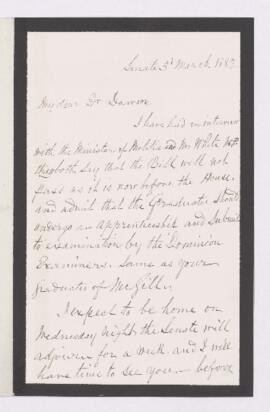 Senate 3d March 1883
My dear Dr Dawson
I have had an interview
with the Minister of Militia and Mr White
they both say that the Bill will not
pass as it is now before the House.
and admit that the Graduates should
undergo an Apprenticeship and Submit
to examination by the Dominion
Examiners. Same as your
graduates of McGill.
I expect to be home on
Wednesday night the Senate will
adjourn for a week and I will
have time to See you before